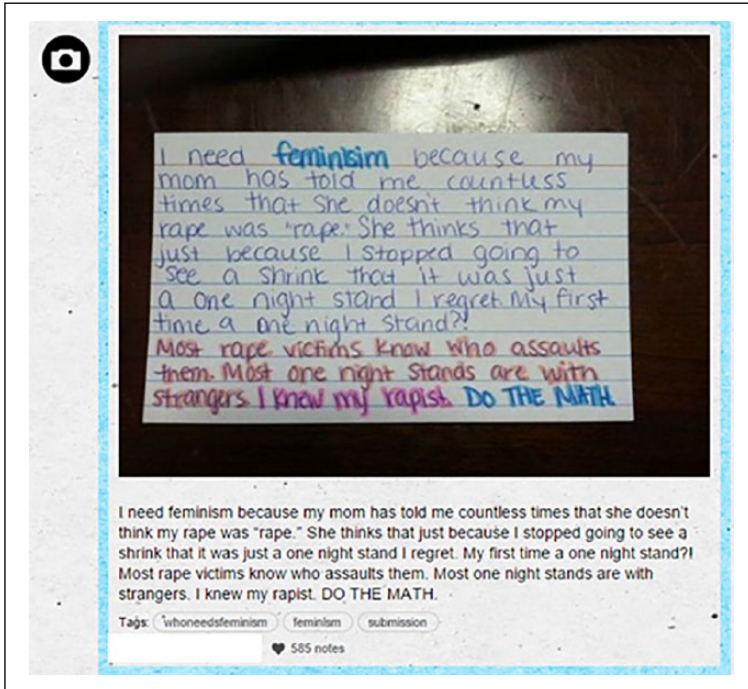 I need feminisim because my
mom has told me countless
times that she doesn't think my
rape was "rape." She thinks that
just because I stopped going to
see a shrink that it was just
a one night stand I regret. My first
time a one night stand?!
Most rape victims know who assaults
them. Most one night stands are with
strangers. I knew my rapist. DO THE MATH.
I need feminism because my mom has told me countless times that she doesn't
think my rape was "rape." She thinks that just because I stopped going to see a
shrink that it was just a one night stand I regret. My first time a one night stand?!
Most rape victims know who assaults them. Most one night stands are with
strangers. I knew my rapist. DO THE MATH.
Tags: whoneedsfeminism feminism submission
585 notes